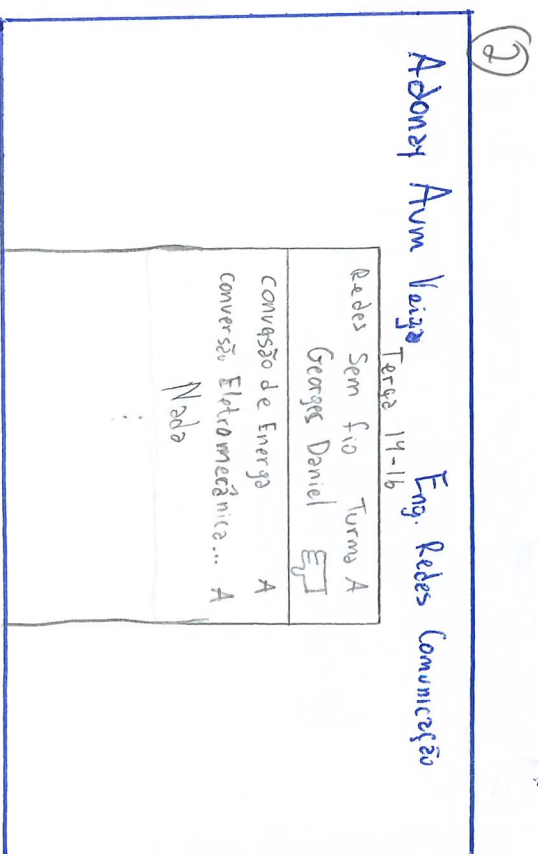 2
Adonay Aum Veiga Eng. Redes Comunicação
Terça 14-16
Redes Sem fio Turma A
Georges Daniel
Conversão de Energa A
conversão Eletromecânica... A
Nada
⋮